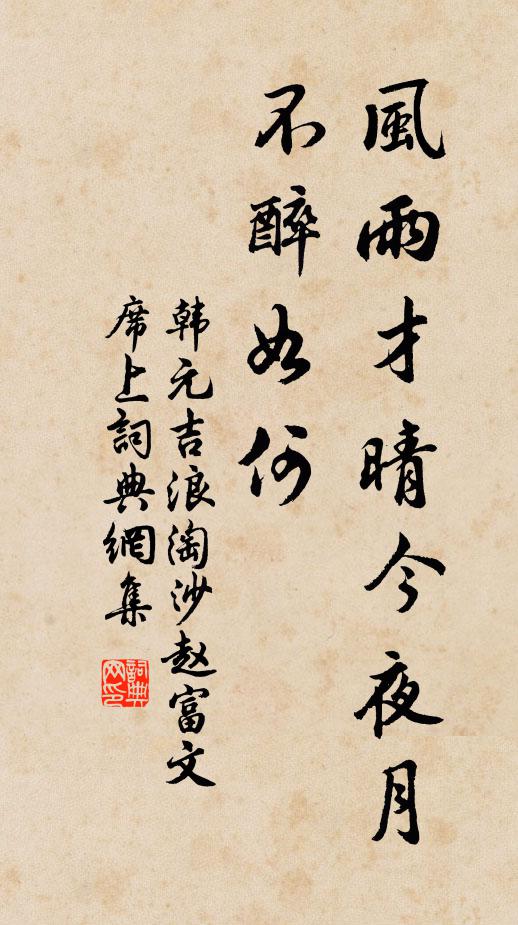 風雨才晴今夜月
不醉如何
韩元吉浪淘沙赵富文
席上詞典網集
詞典
网印